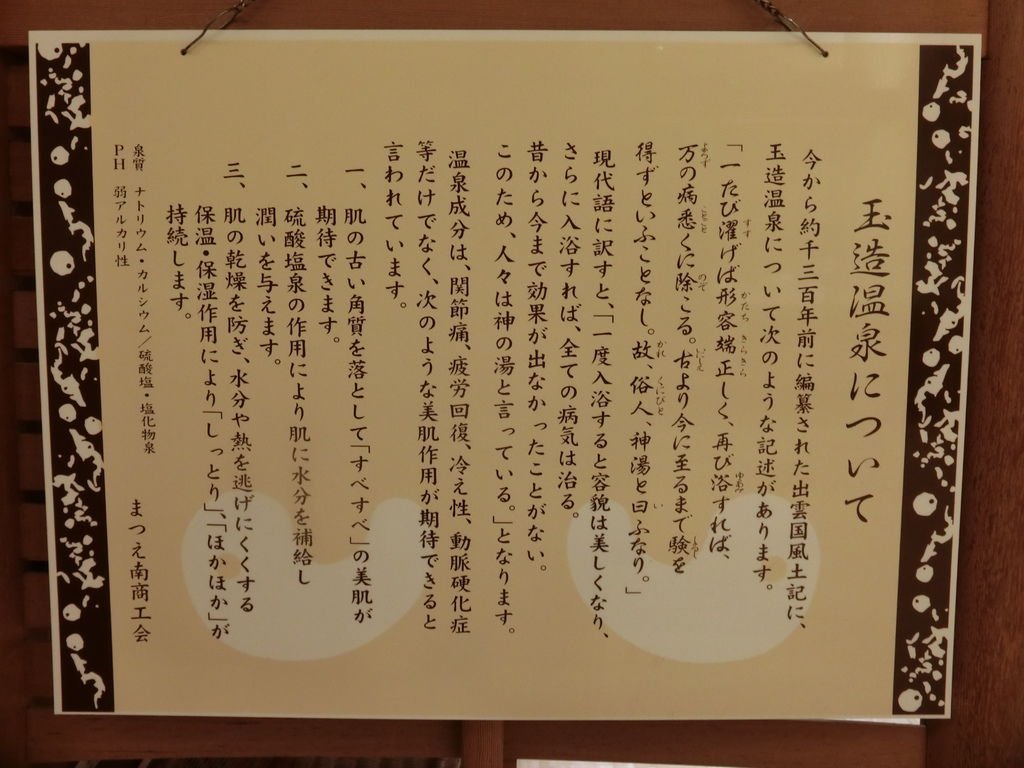 玉造温泉について
今から約千三百年前に編纂された出雲国風土記に、
玉造温泉について次のような記述があります。
「一たび濯げば形容端正しく、再び浴すれば、
万の病悉くに除こる。古より今に至るまで験を
得ずといふことなし。故、俗人、神湯と曰ふなり。」
現代語に訳すと、「一度入浴すると容貌は美しくなり、
さらに入浴すれば、全ての病気は治る。
昔から今まで効果が出なかったことがない。
このため、人々は神の湯と言っている。」となります。
温泉成分は、関節痛、疲労回復、冷え性、動脈硬化症
等だけでなく、次のような美肌作用が期待できると
言われています。
一、肌の古い角質を落として「すべすべ」の美肌が
期待できます。
二、硫酸塩泉の作用により肌に水分を補給し
潤いを与えます。
三、肌の乾燥を防ぎ、水分や熱を逃げにくくする
保温・保湿作用により「しっとり」、「ほかほか」が
持続します。
泉質 ナトリウム・カルシウム/硫酸塩・塩化物泉
PH 弱アルカリ性
まつえ南商工会